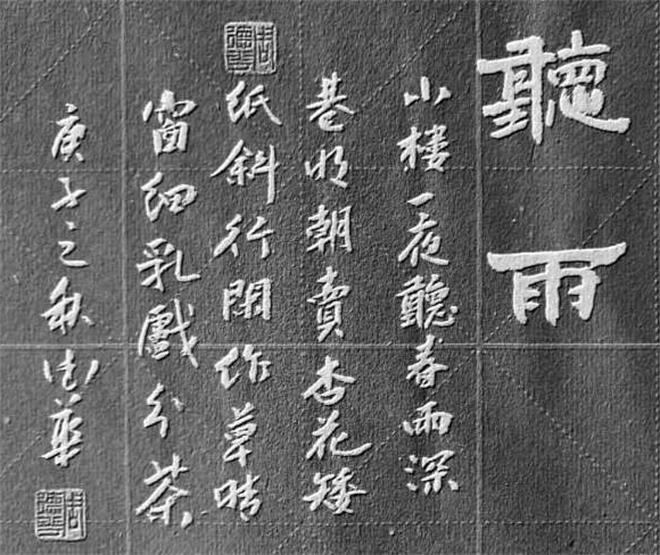 聽雨
小樓一夜聽春雨深
巷明朝賣杏花矮
紙斜行閒作草晴
窗細乳戲分茶
庚子之秋德華
周德華
周德華